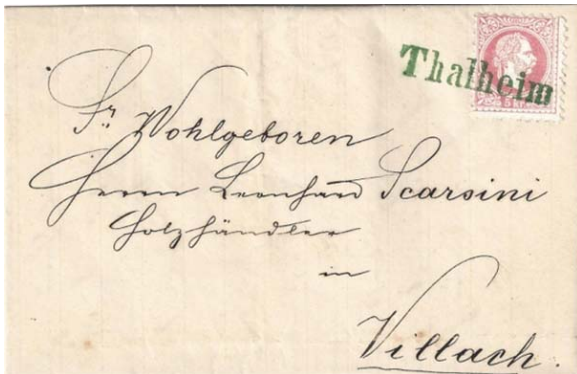 Thalheim
5 kr
Sr. Wohlgeboren
Herrn Leonhard Scarsini
Holzhändler
in
Villach.